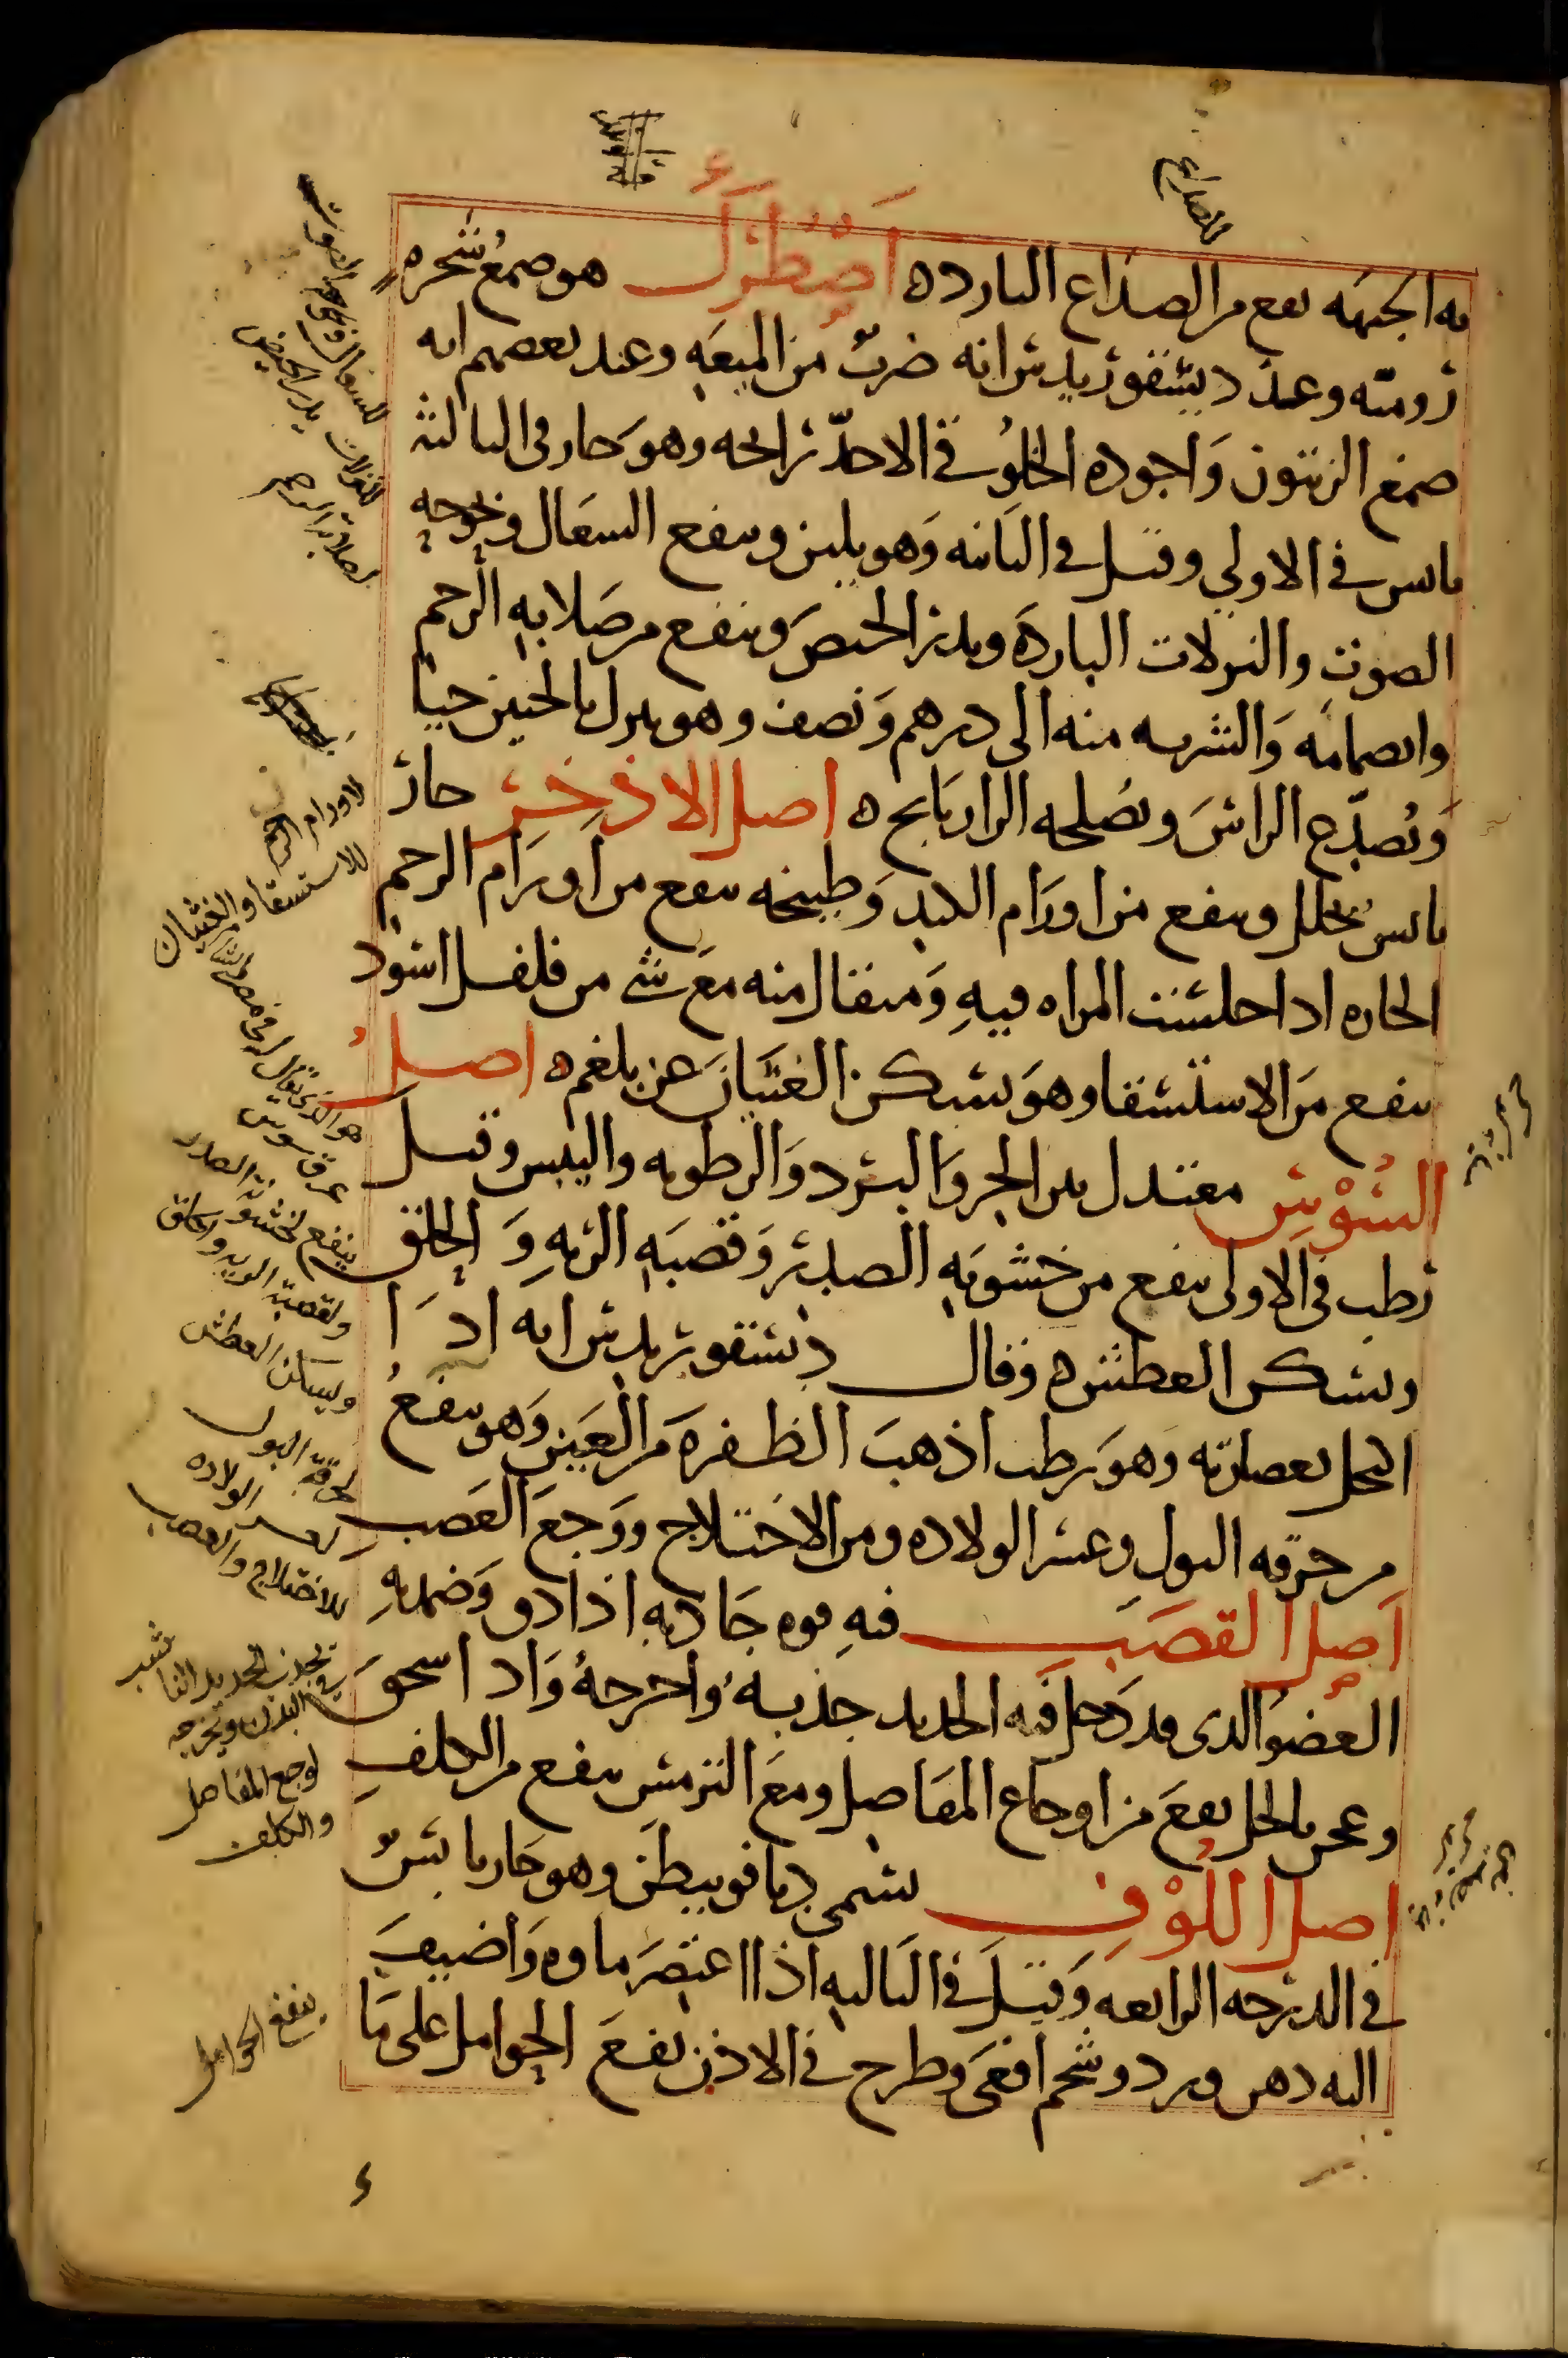 به الجبهه نفع من الصداع البارده اصطرك هو صمغ شجره
روميه وعند ديسقوريدس انه ضرب من الميعه وعند بعضهم انه
صمغ الزيتون واجوده الاحد رايحه وهو حار في الثالثه
يابس في الاولى وقيل في الثانيه وهو يلين وينفع السعال وبحوحه
الصوت والنزلات البارده ويدر الحيض وينفع من صلابه الرحم
وانضمامه والشربه منه الى درهم ونصف وهو ينزل بالجنين حيا
ويصدع الراس ويصلحه الرازيانج ه اصل الاذخر حار
يابس يحلل وينفع من اورام الكبد وطبيخه ينفع من اورام الرحم
الحاره اذا جلست المراه فيه ومثقال منه مع شي من فلفل اسود
ينفع من الاستسقا وهو يسكن الغثيان عن بلغم ه اصل
السوس معتدل بين الحر والبرد والرطوبه واليبس وقيل
رطب في الاولى ينفع من خشونه الصدر وقصبه الريه والحلق
ويسكن العطش ه وقال ديسقوريدس انه اذا
اكتحل بعصارته وهو رطب اذهب الظفره من العين وهو ينفع
من حرقه البول وعسر الولاده ومن الاختلاج ووجع العصب
اصل القصب فيه قوه جاذبه اذا دق وضمد به
العضو الذي قد دخل فيه الحديد جذبه واخرجه واذا سحق
وعجن بالخل نفع من اوجاع المفاصل ومع الترمس ينفع من الكلف
اصل اللوف يسمى دراقونيطن وهو حار يابس
في الدرجه الرابعه وقيل في الثالثه اذا اعتصر ماوه واضيف
اليه دهن ورد وشحم افعى وطرح في الاذن نفع الحوامل على ما
للصداع
للسعال
للنزلات يدر الحيض
لصلابة الرحم
لاورام الرحم
للاستسقا والغثيان
هو الذي يقال له
عرق سوس
ينفع لخشونة الصدر
ولقصبة الريه والحلق
ويسكن العطش
لحرقة البول
لعسر الولاده
للاختلاج والعصب
يجذب الحديد الناشب
في البدن ويخرجه
لوجع المفاصل
والكلف
ينفع الحوامل